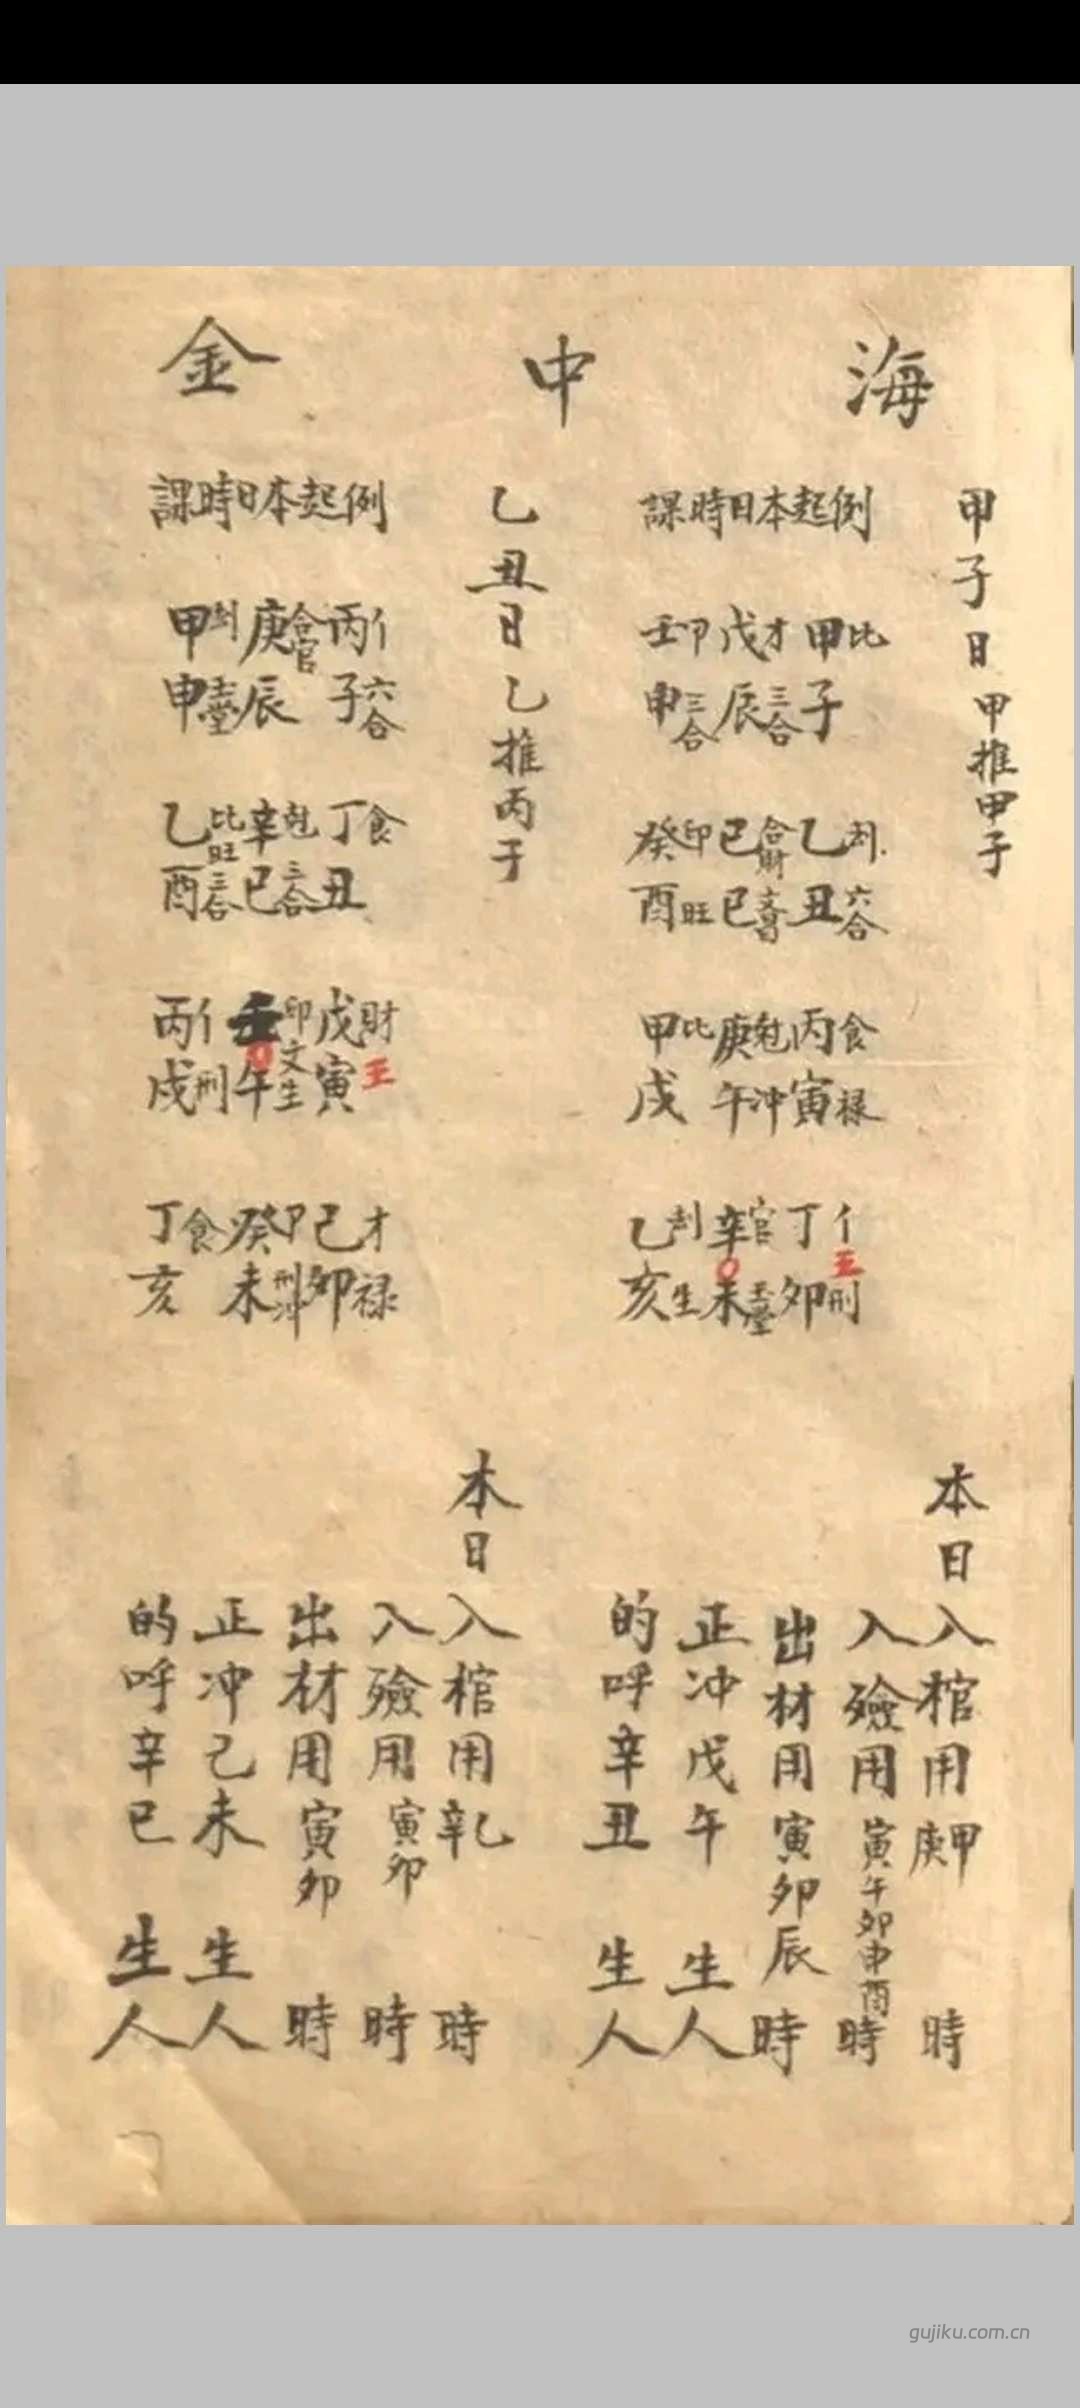 海中金
甲子日甲推甲子
例起本日時課
甲比 戊才 壬卩
子 三合 辰 三合 申
乙刦 己合財 癸印
丑六合 巳 酉旺
丙食 庚尅 甲比
寅禄 午冲 戌
丁亻 辛官 乙刦
王
卯刑 未玉堂 亥生
本日
入棺用甲庚時
入殮用寅午卯申酉時
出材用寅卯辰時
正冲戊午生人
的呼辛丑生人
乙丑日乙推丙子
例起本日時課
丙亻 庚合官 甲刦
子六合 辰 申
丁食 辛尅 乙比旺
丑 三合 巳 三合 酉
戊財 壬印 丙亻
王
寅 午文生 戌刑
己才 癸卩 丁食
卯禄 未刑冲 亥
本日
入棺用乾時
入殮用寅卯時
出材用寅卯時
正冲己未生人
的呼辛巳生人
gujiku.com.cn